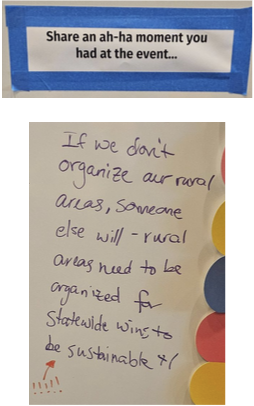 Share an ah-ha moment you
had at the event...
If we don't
organize our rural
areas, someone
else will - rural
areas need to be
organized for
statewide wins to
be sustainable +1
!!!!!